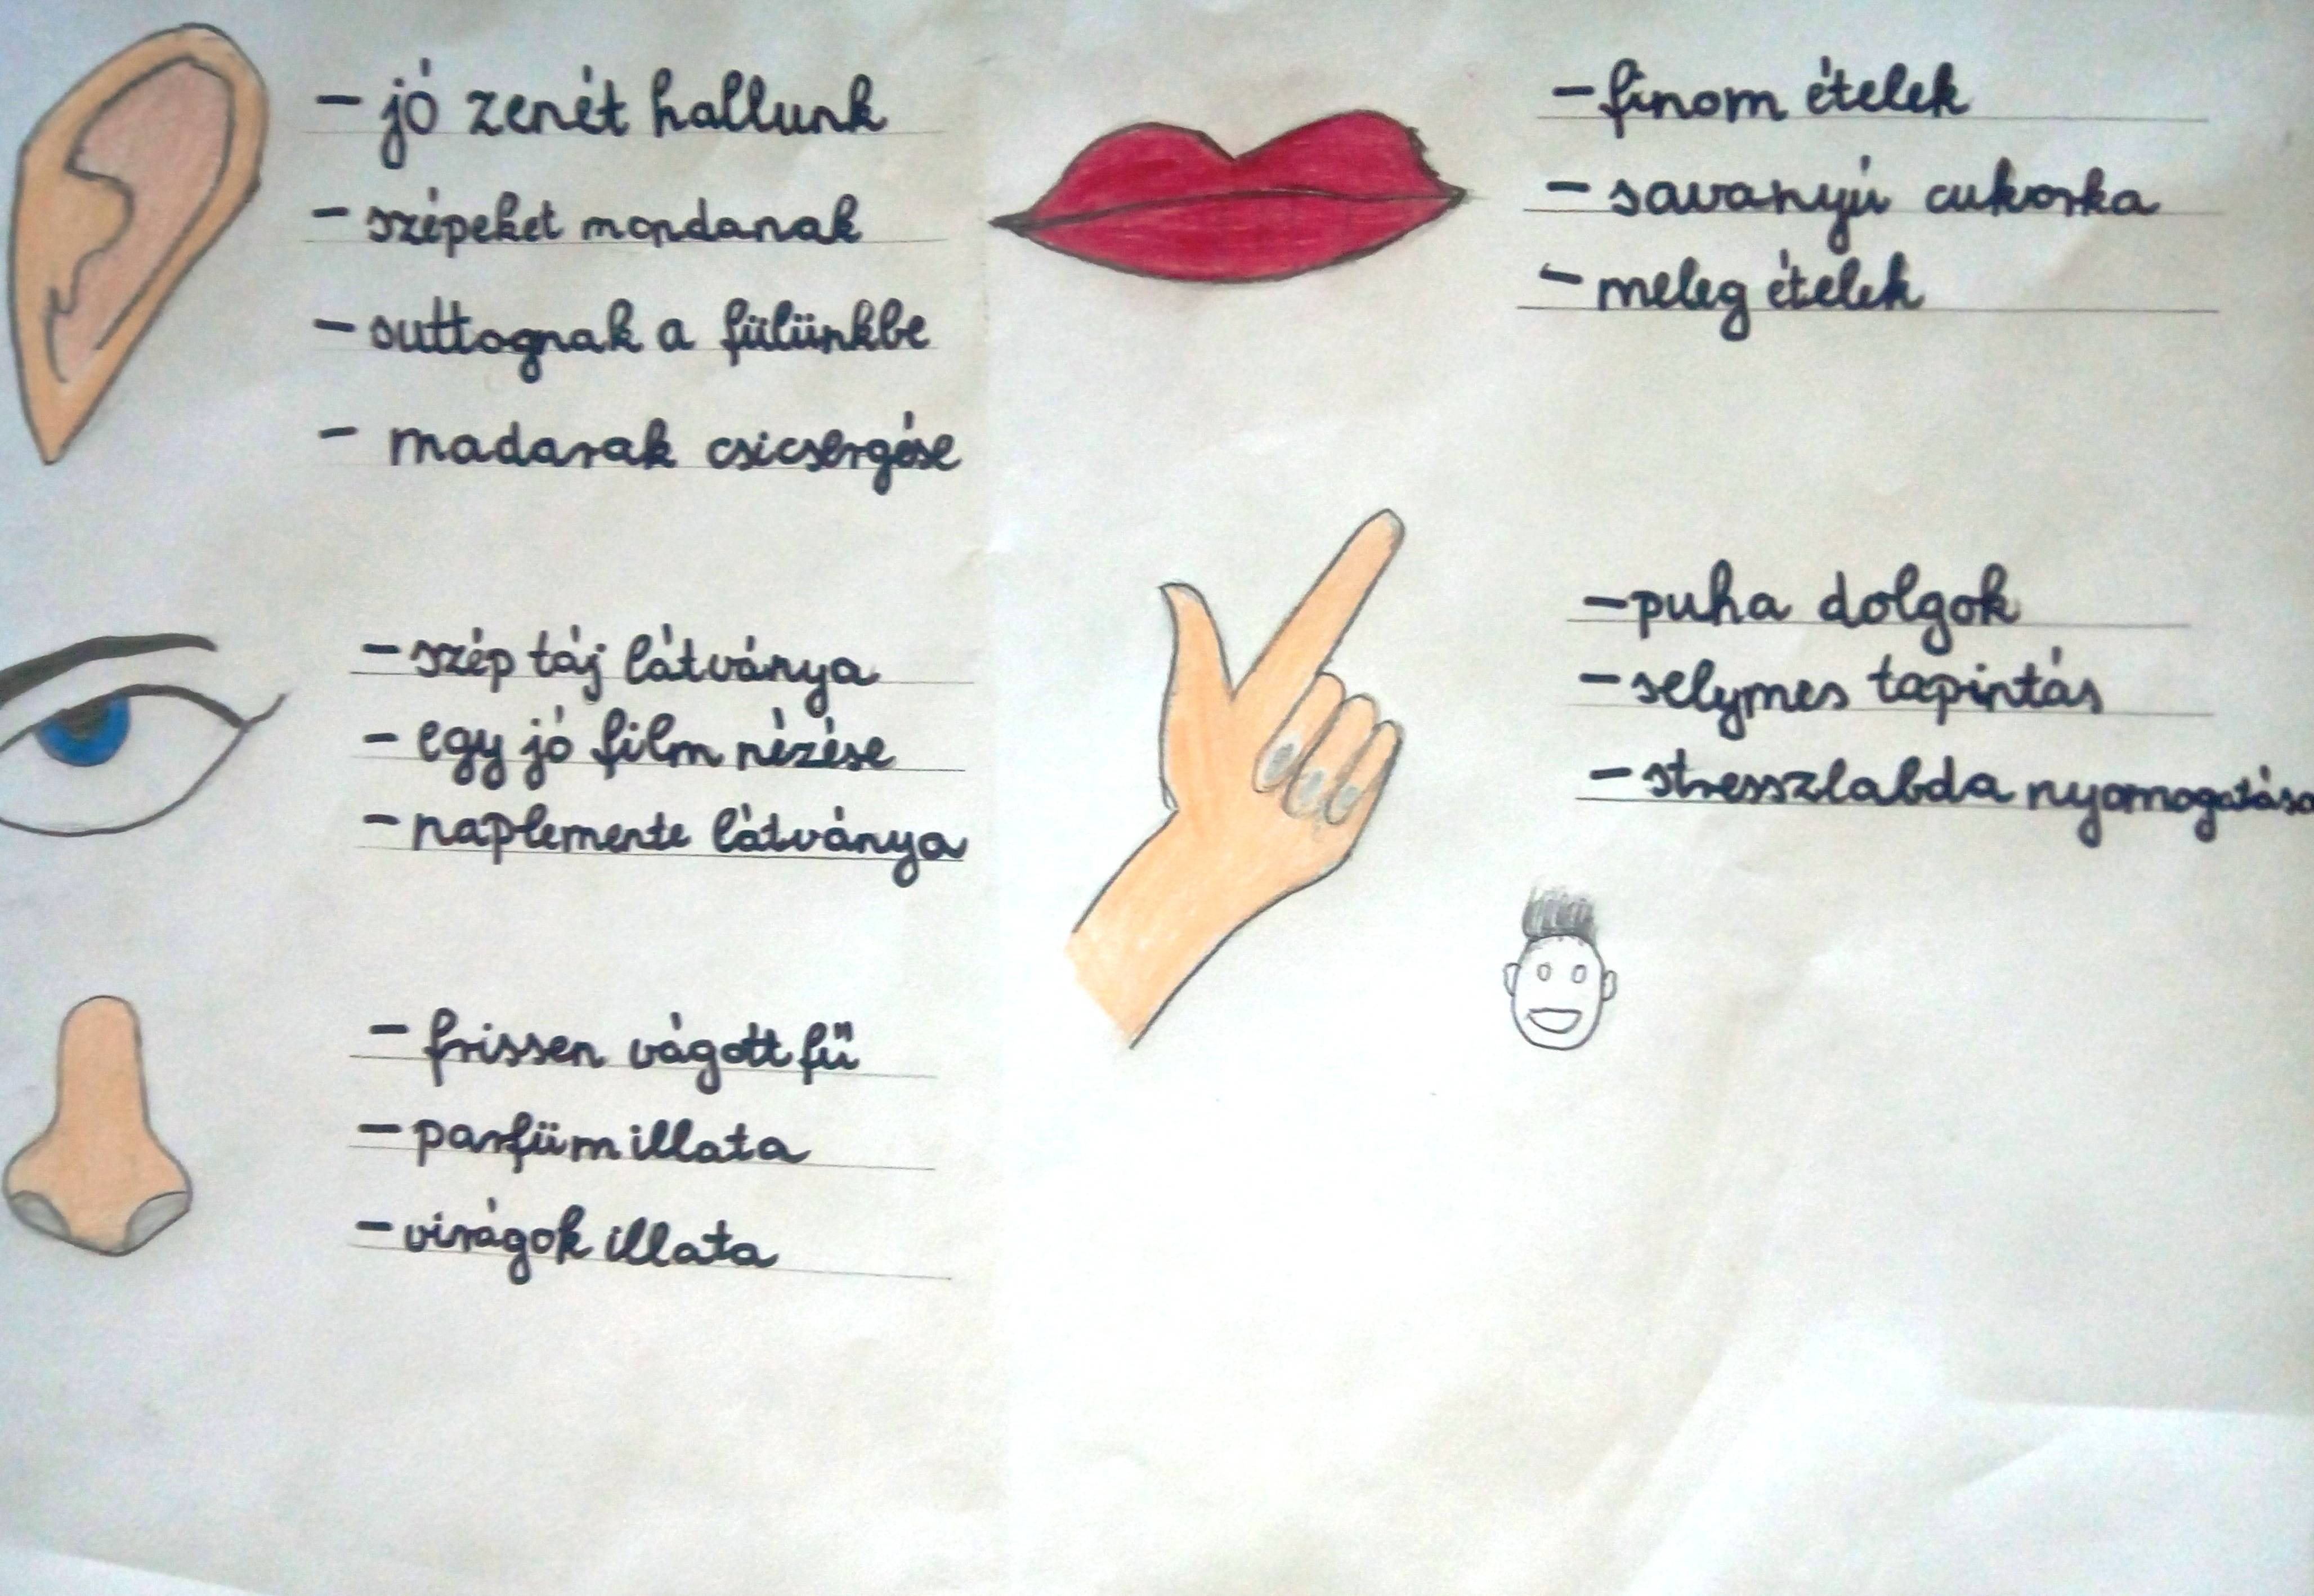 - jó zenét hallunk
- szépeket mondanak
- suttognak a fülünkbe
- madarak csicsergése
- szép táj látványa
- egy jó film nézése
- naplemente látványa
- frissen vágott fű
- parfüm illata
- virágok illata
- finom ételek
- savanyú cukorka
- meleg ételek
- puha dolgok
- selymes tapintás
- stresszlabda nyomogatása